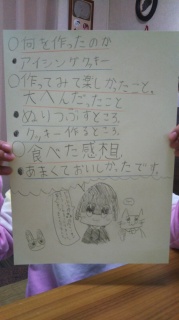 ○何を作ったのか
●アイシングクッキー
○作ってみて楽しかったこと。
大へんだったこと
●ぬりつぶすところ
●クッキー作るところ。
○食べた感想。
●あまくておいしかったです。